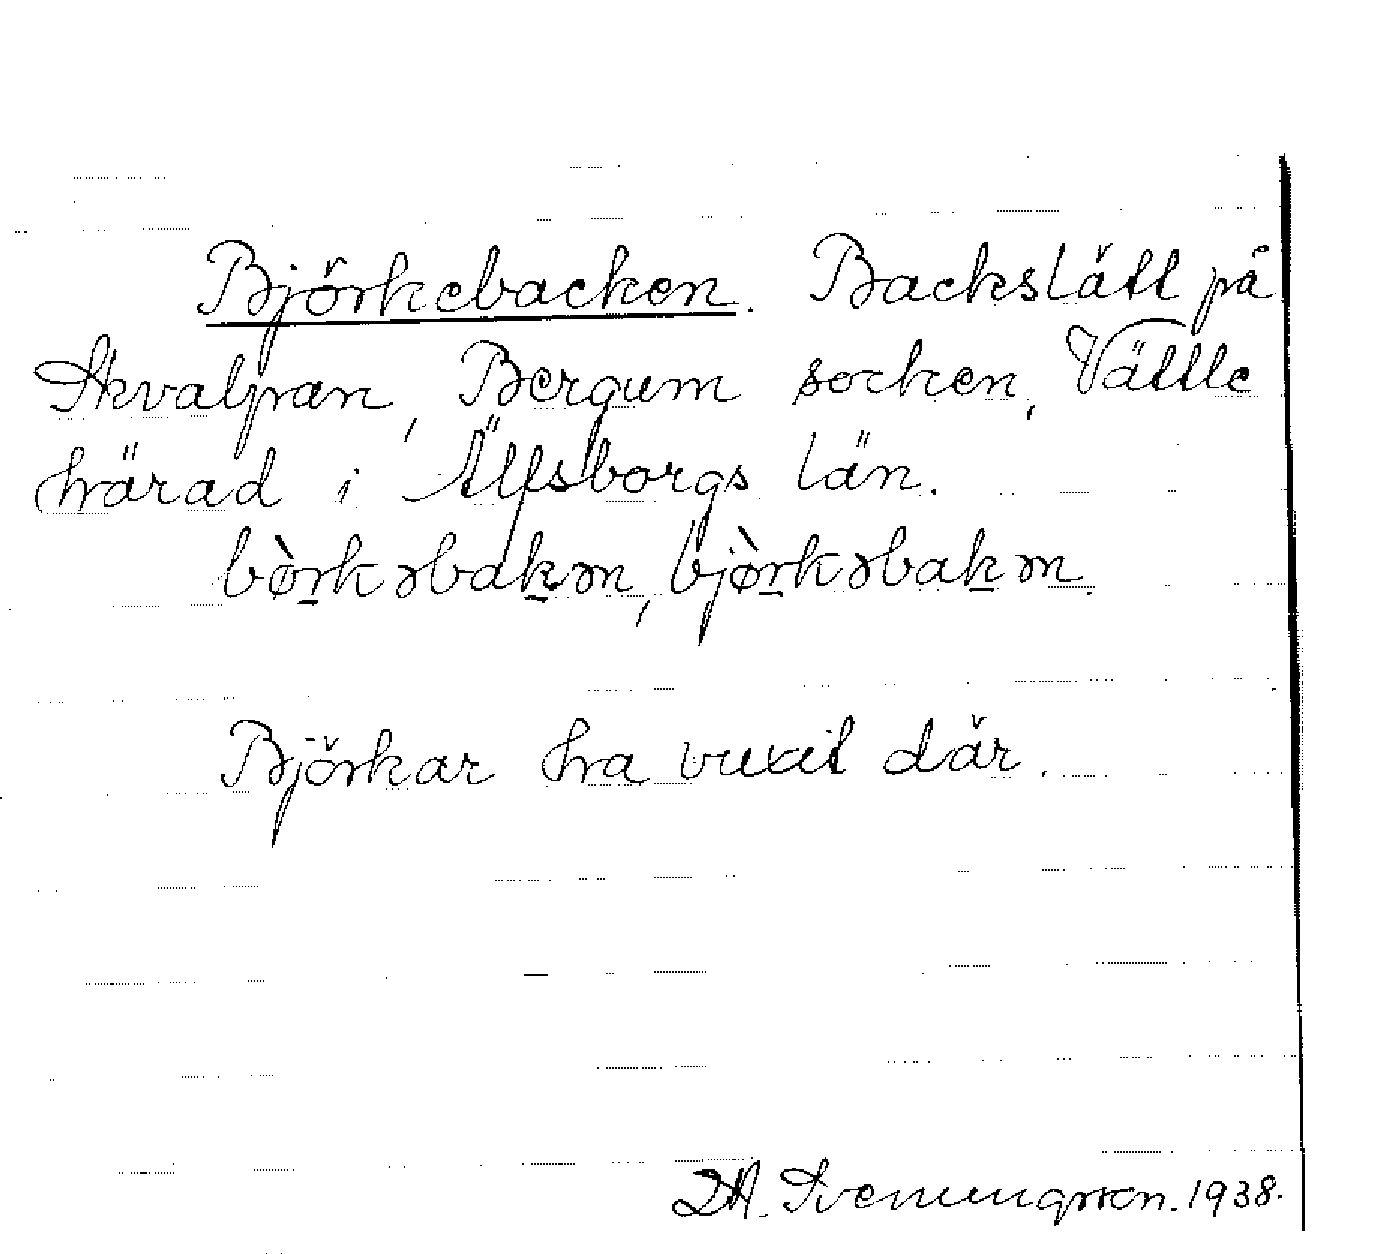 Björkebacken. Backslätt på
Skvalpan, Bergum socken, Vättle
härad i Älfsborgs län.
bø̀rkəbakən, bjø̀rkəbakən.
Björkar ha vuxit där.
D.A. Svenungsson. 1938.